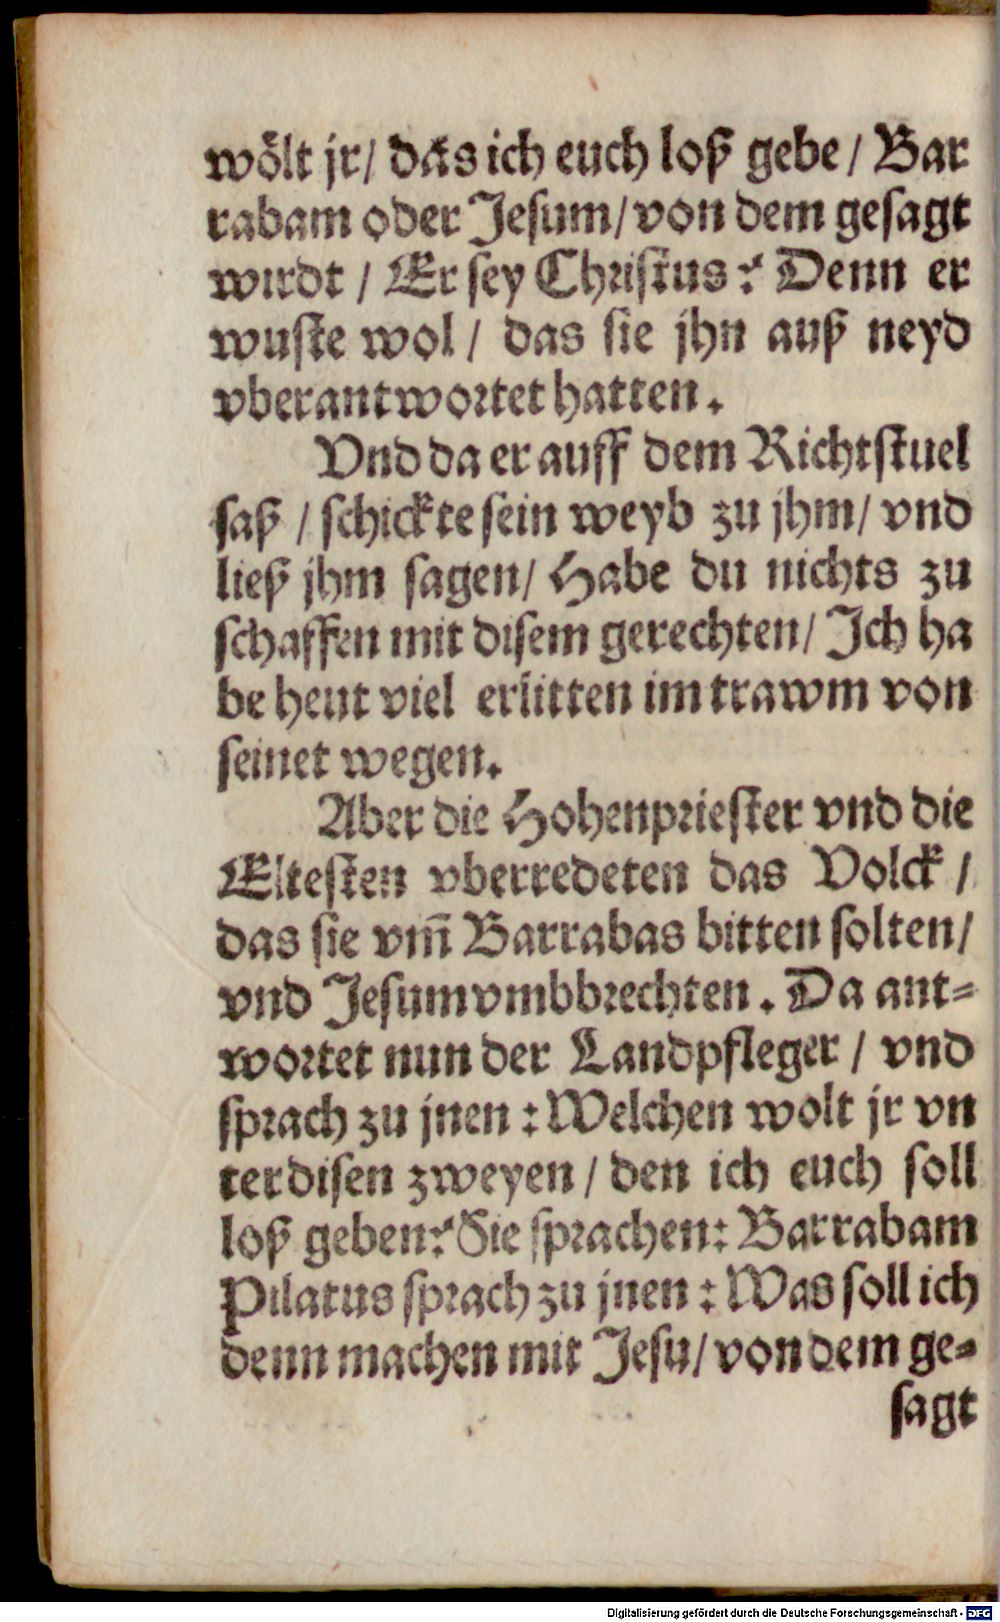 wölt jr/ das ich euch loß gebe/ Bar
rabam oder Jesum/ von dem gesagt
wirdt/ Er sey Christus? Denn er
wuste wol/ das sie jhn auß neyd
vberantwortet hatten.
Vnd da er auff dem Richtstuel
saß/ schickte sein weyb zu jhm/ vnd
ließ jhm sagen/ Habe du nichts zu
schaffen mit disem gerechten/ Ich ha
be heut viel erlitten im trawm von
seinet wegen.
Aber die Hohenpriester vnd die
Eltesten vberredeten das Volck/
das sie vm̅ Barrabas bitten solten/
vnd Jesum vmbbrechten. Da ant=
wortet nun der Landpfleger/ vnd
sprach zu jnen: Welchen wolt jr vn
ter disen zweyen/ den ich euch soll
loß geben? Sie sprachen: Barrabam
Pilatus sprach zu jnen: Was soll ich
denn machen mit Jesu/ von dem ge=
sagt
Digitalisierung gefördert durch die Deutsche Forschungsgemeinschaft - DFG